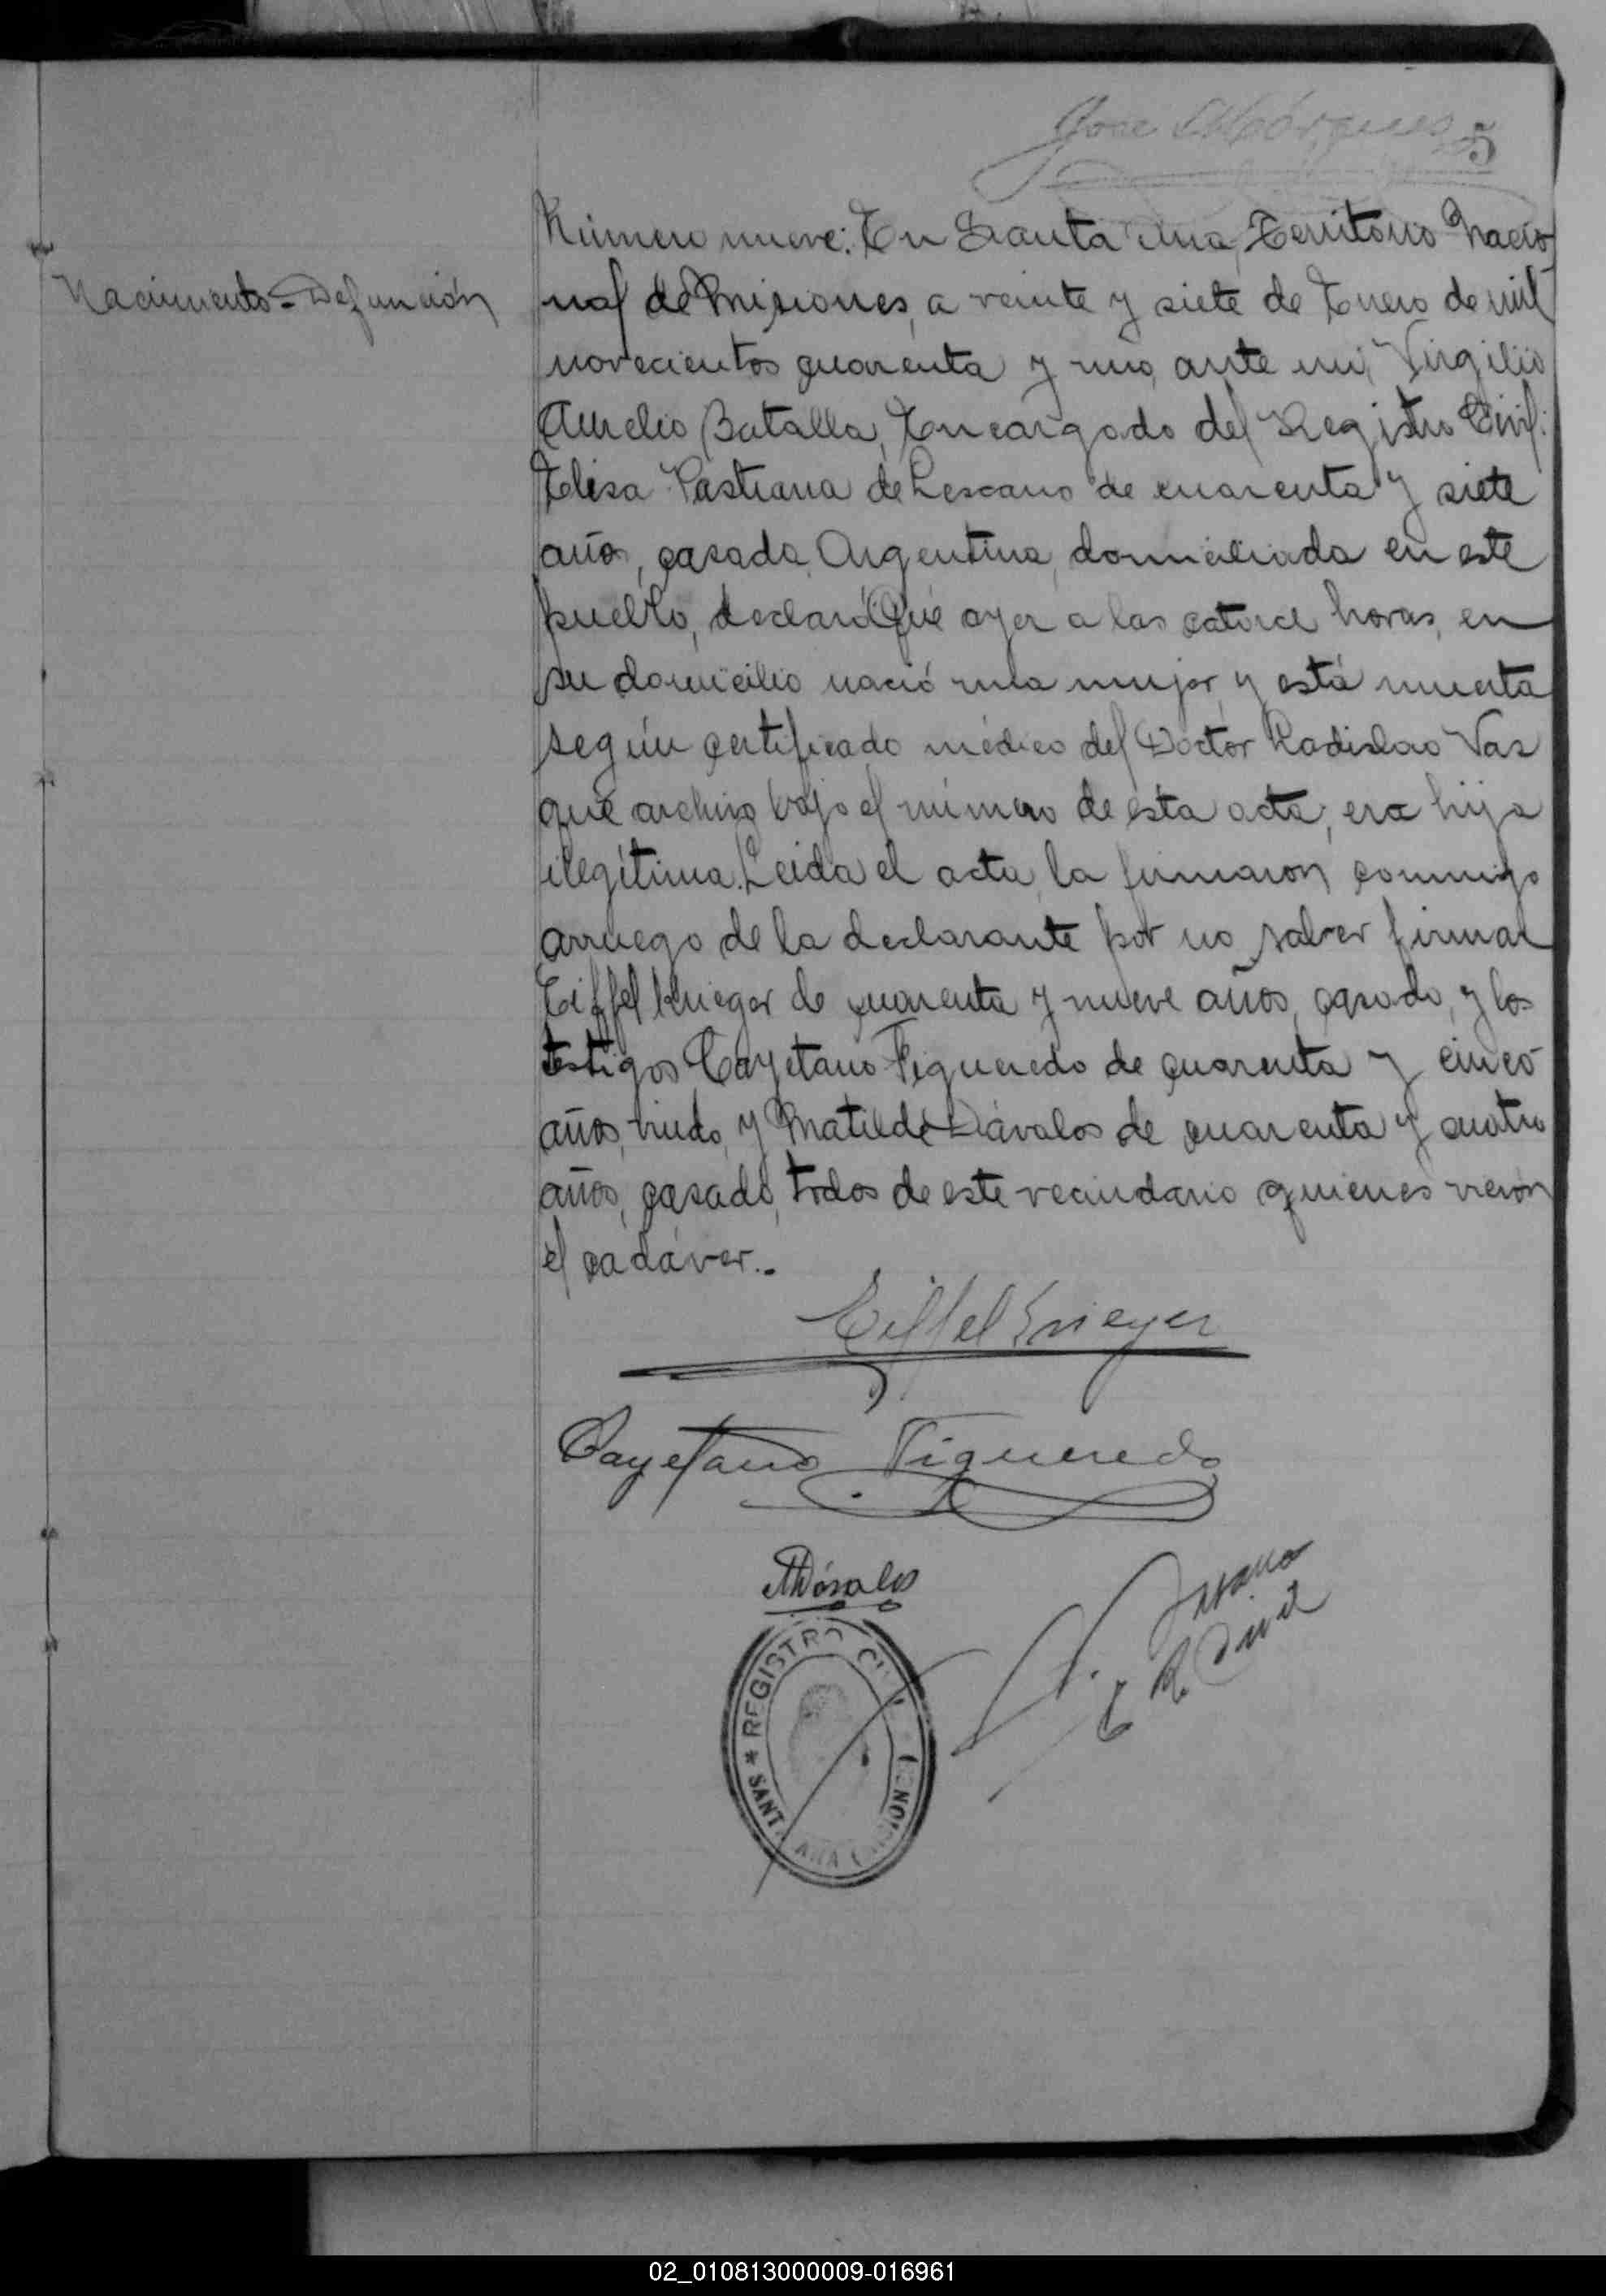 Jose Márques
5
Número nueve: En Santa Ana, Territorio Nacio-
Nacimiento=Defunción
nal de Misiones, a veinte y siete de Enero de mil
novecientos cuarenta y uno, ante mi, Virgilio
Aurelio Batalla, Encargado del Registro Civil:
Elisa Pastrana de Lescano de cuarenta y siete
años, casada, Argentina, domiciliada en este
pueblo, declaró: Que ayer a las catorce horas, en
su domicilio nació una mujer, y está muerta
según certificado médico del Doctor Ladislao Vas
que archivo bajo el número de esta acta, era hija
ilegítima. Leida el acta, la firmaron conmigo
arruego de la declarante por no saber firmar
Eiffel Krieger de cuarenta y nueve años, casado, y los
testigos Cayetano Figueredo de cuarenta y cinco
años, viudo, y Matilde Dávalos de cuarenta y cuatro
años, casado, todos de este vecindario quienes vieron
el cadáver..
Eiffel Krieger
Cayetano Figueredo
MDávalos
E R Civil
* REGISTRO CIVIL
SANTA ANA (MISIONES)
02_010813000009-016961